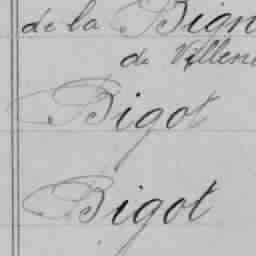 de la Bign
de Villene
Bigot
Bigot